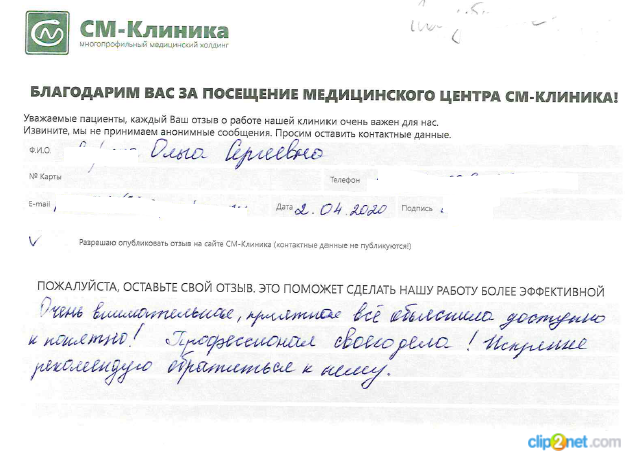 СМ-Клиника
многопрофильный медицинский холдинг
БЛАГОДАРИМ ВАС ЗА ПОСЕЩЕНИЕ МЕДИЦИНСКОГО ЦЕНТРА СМ-КЛИНИКА!
Уважаемые пациенты, каждый Ваш отзыв о работе нашей клиники очень важен для нас.
Извините, мы не принимаем анонимные сообщения. Просим оставить контактные данные.
Ф.И.О. Ольга Сергеевна
№ Карты Телефон
E-mail Дата 2.04.2020 Подпись
Разрашаю опубликовать отзыв на сайте СМ-Клиника (контактные данные не публикуются!)
ПОЖАЛУЙСТА, ОСТАВЬТЕ СВОЙ ОТЗЫВ. ЭТО ПОМОЖЕТ СДЕЛАТЬ НАШУ РАБОТУ БОЛЕЕ ЭФФЕКТИВНОЙ
Очень внимательная, приятная всё объяснила доступно
и понятно! Профессионал своего дела! Искренне
рекомендую обратиться к нему.
clip2net.com